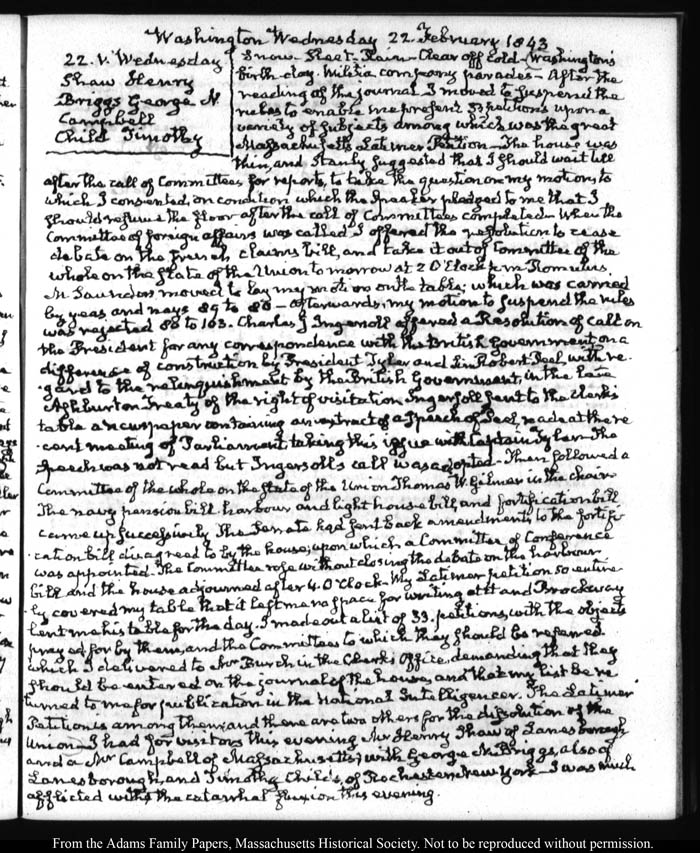 Washington Wednesday 22. February 1843
22. V. Wednesday
Shaw Henry
Briggs George N.
Campbell
Child Timothy
Snow - Sleet - Rain - Clear off Cold - Washington's
birth-day. Militia company parades - After the
reading of the journal I moved to suspend the
rules to enable me present 33 petitions upon a
variety of subjects among which was the great
Massachusetts Latimer Petition - The house was
thin, and Stanly suggested that I should wait till
after the call of Committees for reports, to take the question on my motion, to
which I consented, on condition which the Speaker pledged to me that I
should resume the floor after the call of Committees completed - When the
Committee of foreign affairs was called I offered the resolution to cease
debate on the French claims bill, and take it out of Committee of the
whole on the state of the Union to morrow at 2 O'Clock p.m. Romulus
M. Saunders moved to lay my motion on the table; which was carried
by yeas and nays 89 to 80 - afterwards, my motion to suspend the rules
was rejected 88 to 103. Charles J Ingersoll offered a Resolution of call on
the President for any correspondence with the British Government on a
difference of construction by President Tyler and Sir Robert Peel, with re-
gard to the relinquishment by the British Government, in the late
Ashburton Treaty of the right of visitation. Ingersoll sent to the Clerk's
table a newspaper containing an extract of a Speech of Peel, made at the re-
cent meeting of Parliament, taking this issue with Captain Tyler - The
Speech was not read but Ingersoll's call was adopted - Then followed a
Committee of the whole on the state of the Union Thomas W. Gilmer in the chair
The navy pension bill, harbour and light house bill, and fortification bill
came up successively The Senate had sent back amendments to the fortifi-
cation bill disagreed to by the house, upon which a Committee of Conference
was appointed. The Committee rose without closing the debate on the harbour
bill and the house adjourned after 4. O'Clock - My Latimer petition so entire-
ly covered my table that it left me no space for writing at it and Brockway
lent me his table for the day. I made out a list of 33. petitions, with the objects
prayed for by them, and the Committees to which they should be referred
which I delivered to Mr Burch in the Clerk's Office, demanding that they
should be entered on the journal of the house, and that my list be re-
turned to me for publication in the National Intelligencer. The Latimer
Petition is among them, and there are two others for the dissolution of the
Union - I had for visitors this evening Mr Henry Shaw of Lanesborough
and a Mr Campbell of Massachusetts; with George N. Briggs, also of
Lanesborough, and Timothy Childs, of Rochester New York - I was much
afflicted with the catarrhal fluxion this evening.
From the Adams Family Papers, Massachusetts Historical Society. Not to be reproduced without permission.